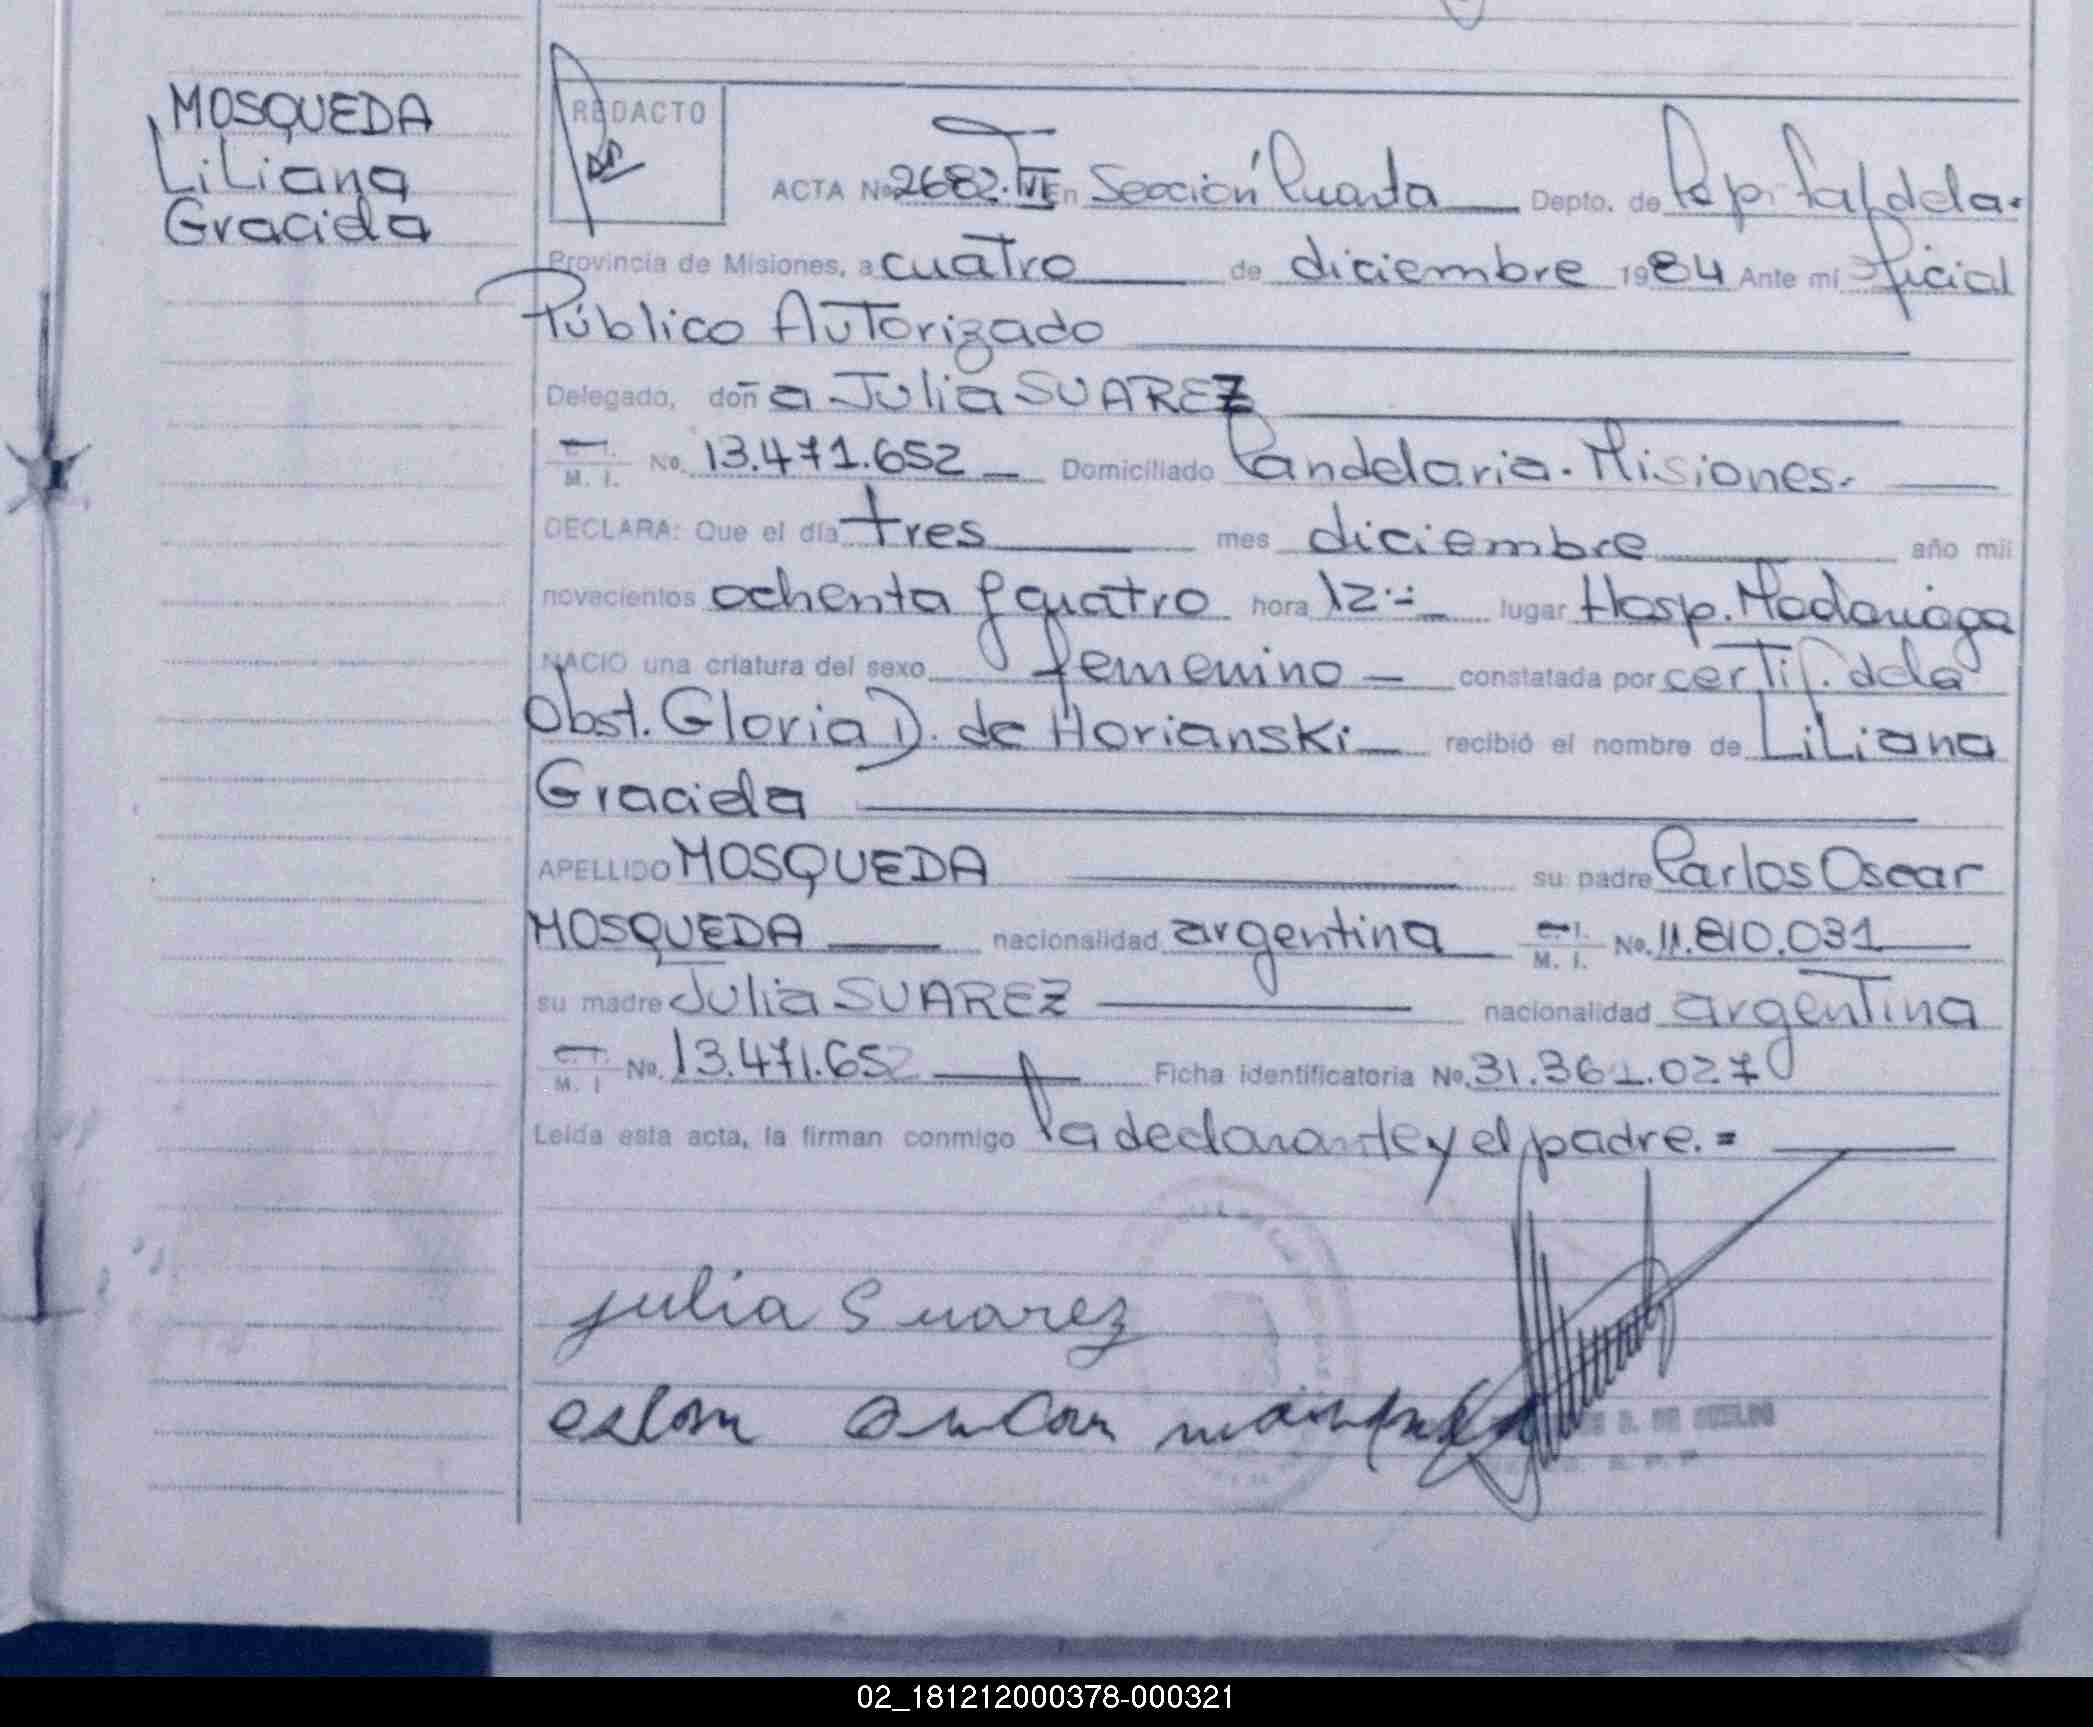 MOSQUEDA
Liliana
Graciela
REDACTO
ACTA No 2682. T VI En Sección Cuarta Depto. de Capital dela.
Provincia de Misiones, a cuatro de diciembre 1984 Ante mí Oficial
Público Autorizado
Delegado, doña Julia SUAREZ
C. I. M. I. No. 13.471.652 Domiciliado Candelaria. Misiones.
DECLARA: Que el día tres mes diciembre año mil
novecientos ochenta y cuatro hora 12 lugar Hosp. Madariaga
NACIO una criatura del sexo femenino constatada por certif. dela
Obst. Gloria D. de Horianski recibió el nombre de Liliana
Graciela
APELLIDO MOSQUEDA su padre Carlos Oscar
MOSQUEDA nacionalidad argentina C. I. M. I. No. 11.810.031
su madre Julia SUAREZ nacionalidad argentina
C. I. M. I No. 13.471.652 Ficha identificatoria No. 31.361.027
Leída esta acta, la firman conmigo la declarante y el padre.=
julia Suarez
02_181212000378-000321